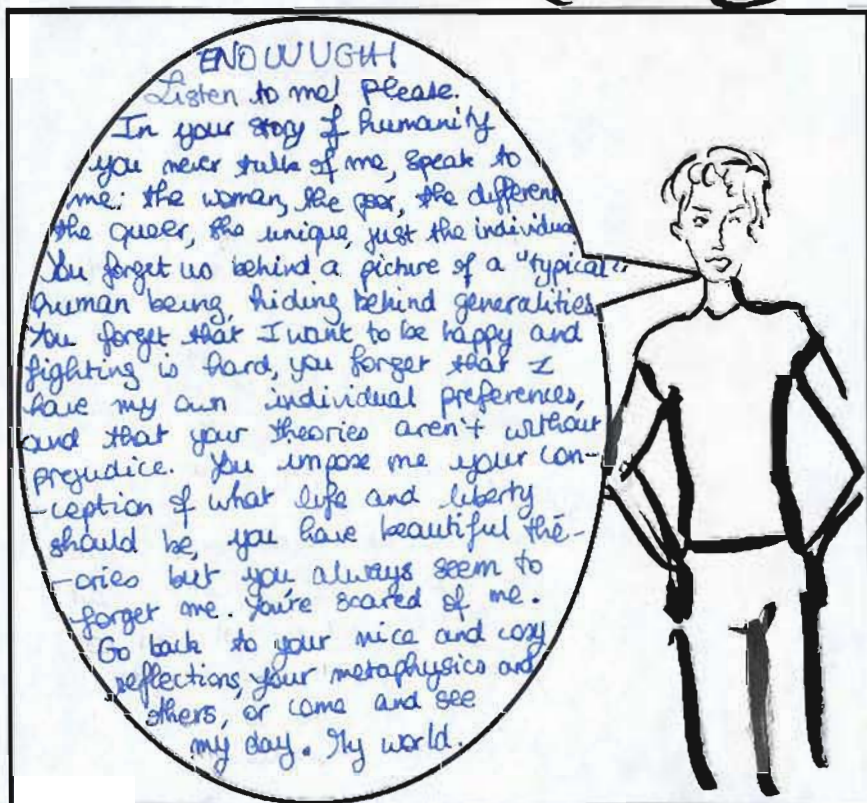 ENOUUUGH!
Listen to me! Please.
In your story of humanity
you never talk of me, speak to
me: the woman, the poor, the different
the queer, the unique, just the individual
You forget us behind a picture of a "typical"
human being, hiding behind generalities
You forget that I want to be happy and
fighting is hard, you forget that I
have my own individual preferences,
and that your theories aren't without
prejudice. You impose me your con-
-ception of what life and liberty
should be, you have beautiful the-
-ories but you always seem to
forget me. You're scared of me.
Go back to your nice and cosy
reflections, your metaphysics and
others, or come and see
my day. My world.